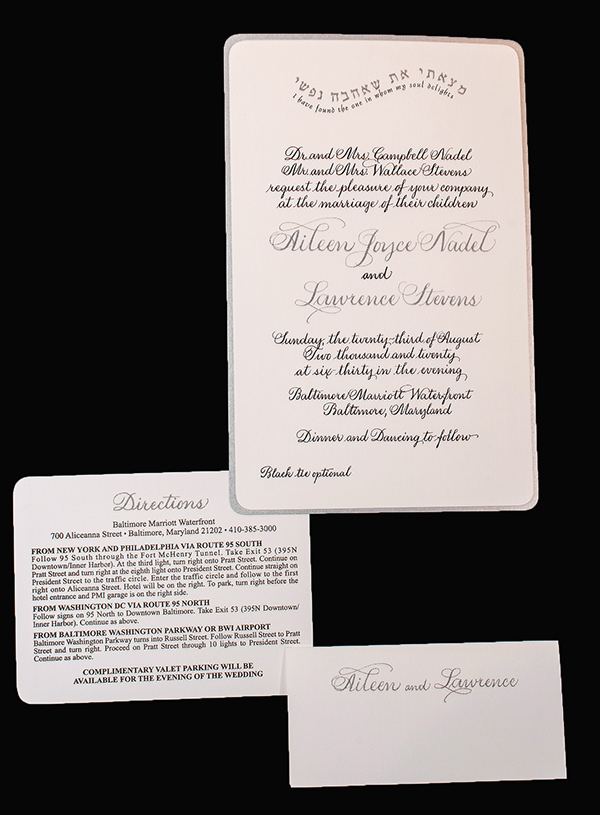 מצאתי את שאהבה נפשי
I have found the one in whom my soul delights
Dr. and Mrs. Campbell Nadel
Mr. and Mrs. Wallace Stevens
request the pleasure of your company
at the marriage of their children
Aileen Joyce Nadel
and
Lawrence Stevens
Sunday, the twenty-third of August
Two thousand and twenty
at six-thirty in the evening
Baltimore Marriott Waterfront
Baltimore, Maryland
Dinner and Dancing to follow
Black tie optional
Directions
Baltimore Marriott Waterfront
700 Aliceanna Street • Baltimore, Maryland 21202 • 410-385-3000
FROM NEW YORK AND PHILADELPHIA VIA ROUTE 95 SOUTH
Follow 95 South through the Fort McHenry Tunnel. Take Exit 53 (395N
Downtown/Inner Harbor). At the third light, turn right onto Pratt Street. Continue on
Pratt Street and turn right at the eighth light onto President Street. Continue straight on
President Street to the traffic circle. Enter the traffic circle and follow to the first
right onto Aliceanna Street. Hotel will be on the right. To park, turn right before the
hotel entrance and PMI garage is on the right side.
FROM WASHINGTON DC VIA ROUTE 95 NORTH
Follow signs on 95 North to Downtown Baltimore. Take Exit 53 (395N Downtown/
Inner Harbor). Continue as above.
FROM BALTIMORE WASHINGTON PARKWAY OR BWI AIRPORT
Baltimore Washington Parkway turns into Russell Street. Follow Russell Street to Pratt
Street and turn right. Proceed on Pratt Street through 10 lights to President Street.
Continue as above.
COMPLIMENTARY VALET PARKING WILL BE
AVAILABLE FOR THE EVENING OF THE WEDDING
Aileen and Lawrence